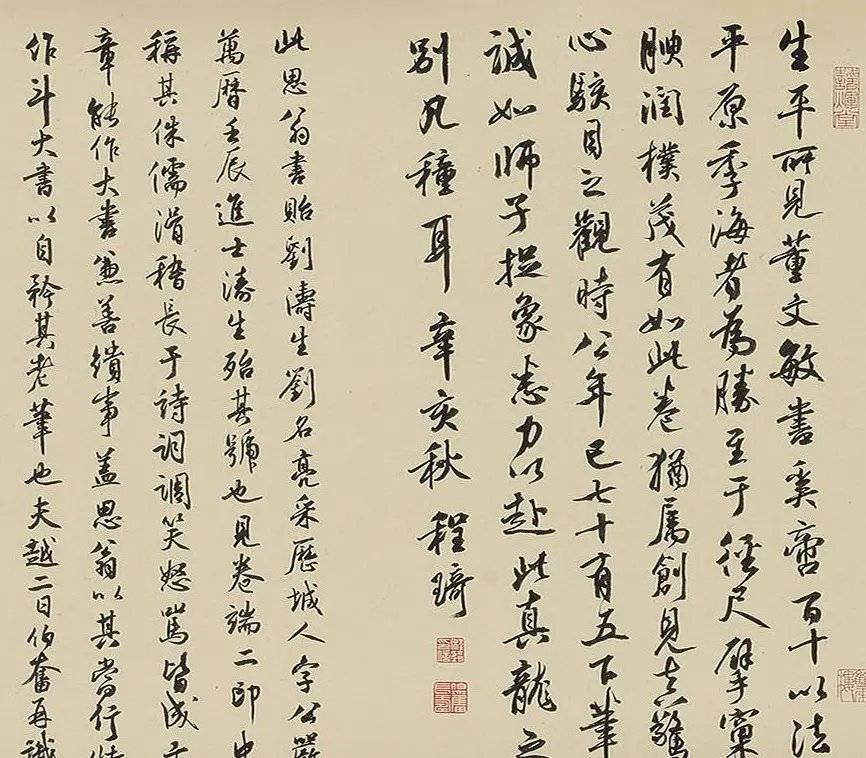 生平所見董文敏書奚啻百十以法
平原季海者為勝至于徑尺擘窠
腴潤樸茂有如此卷猶屬創見真驚
心駭目之觀時公年已七十有五下筆
誠如師子捉象悉力以赴此真龍之
別凡種耳辛亥秋程琦
此思翁書貽劉濤生劉名亮采歷城人字公嚴
萬曆壬辰進士濤生殆其號也見卷端二印史
稱其侏儒滑稽長于詩詞調笑怒罵皆成
章能作大書兼善繢事蓋思翁以其當行
作斗大書以自矜其老筆也夫越二日伯奮再識